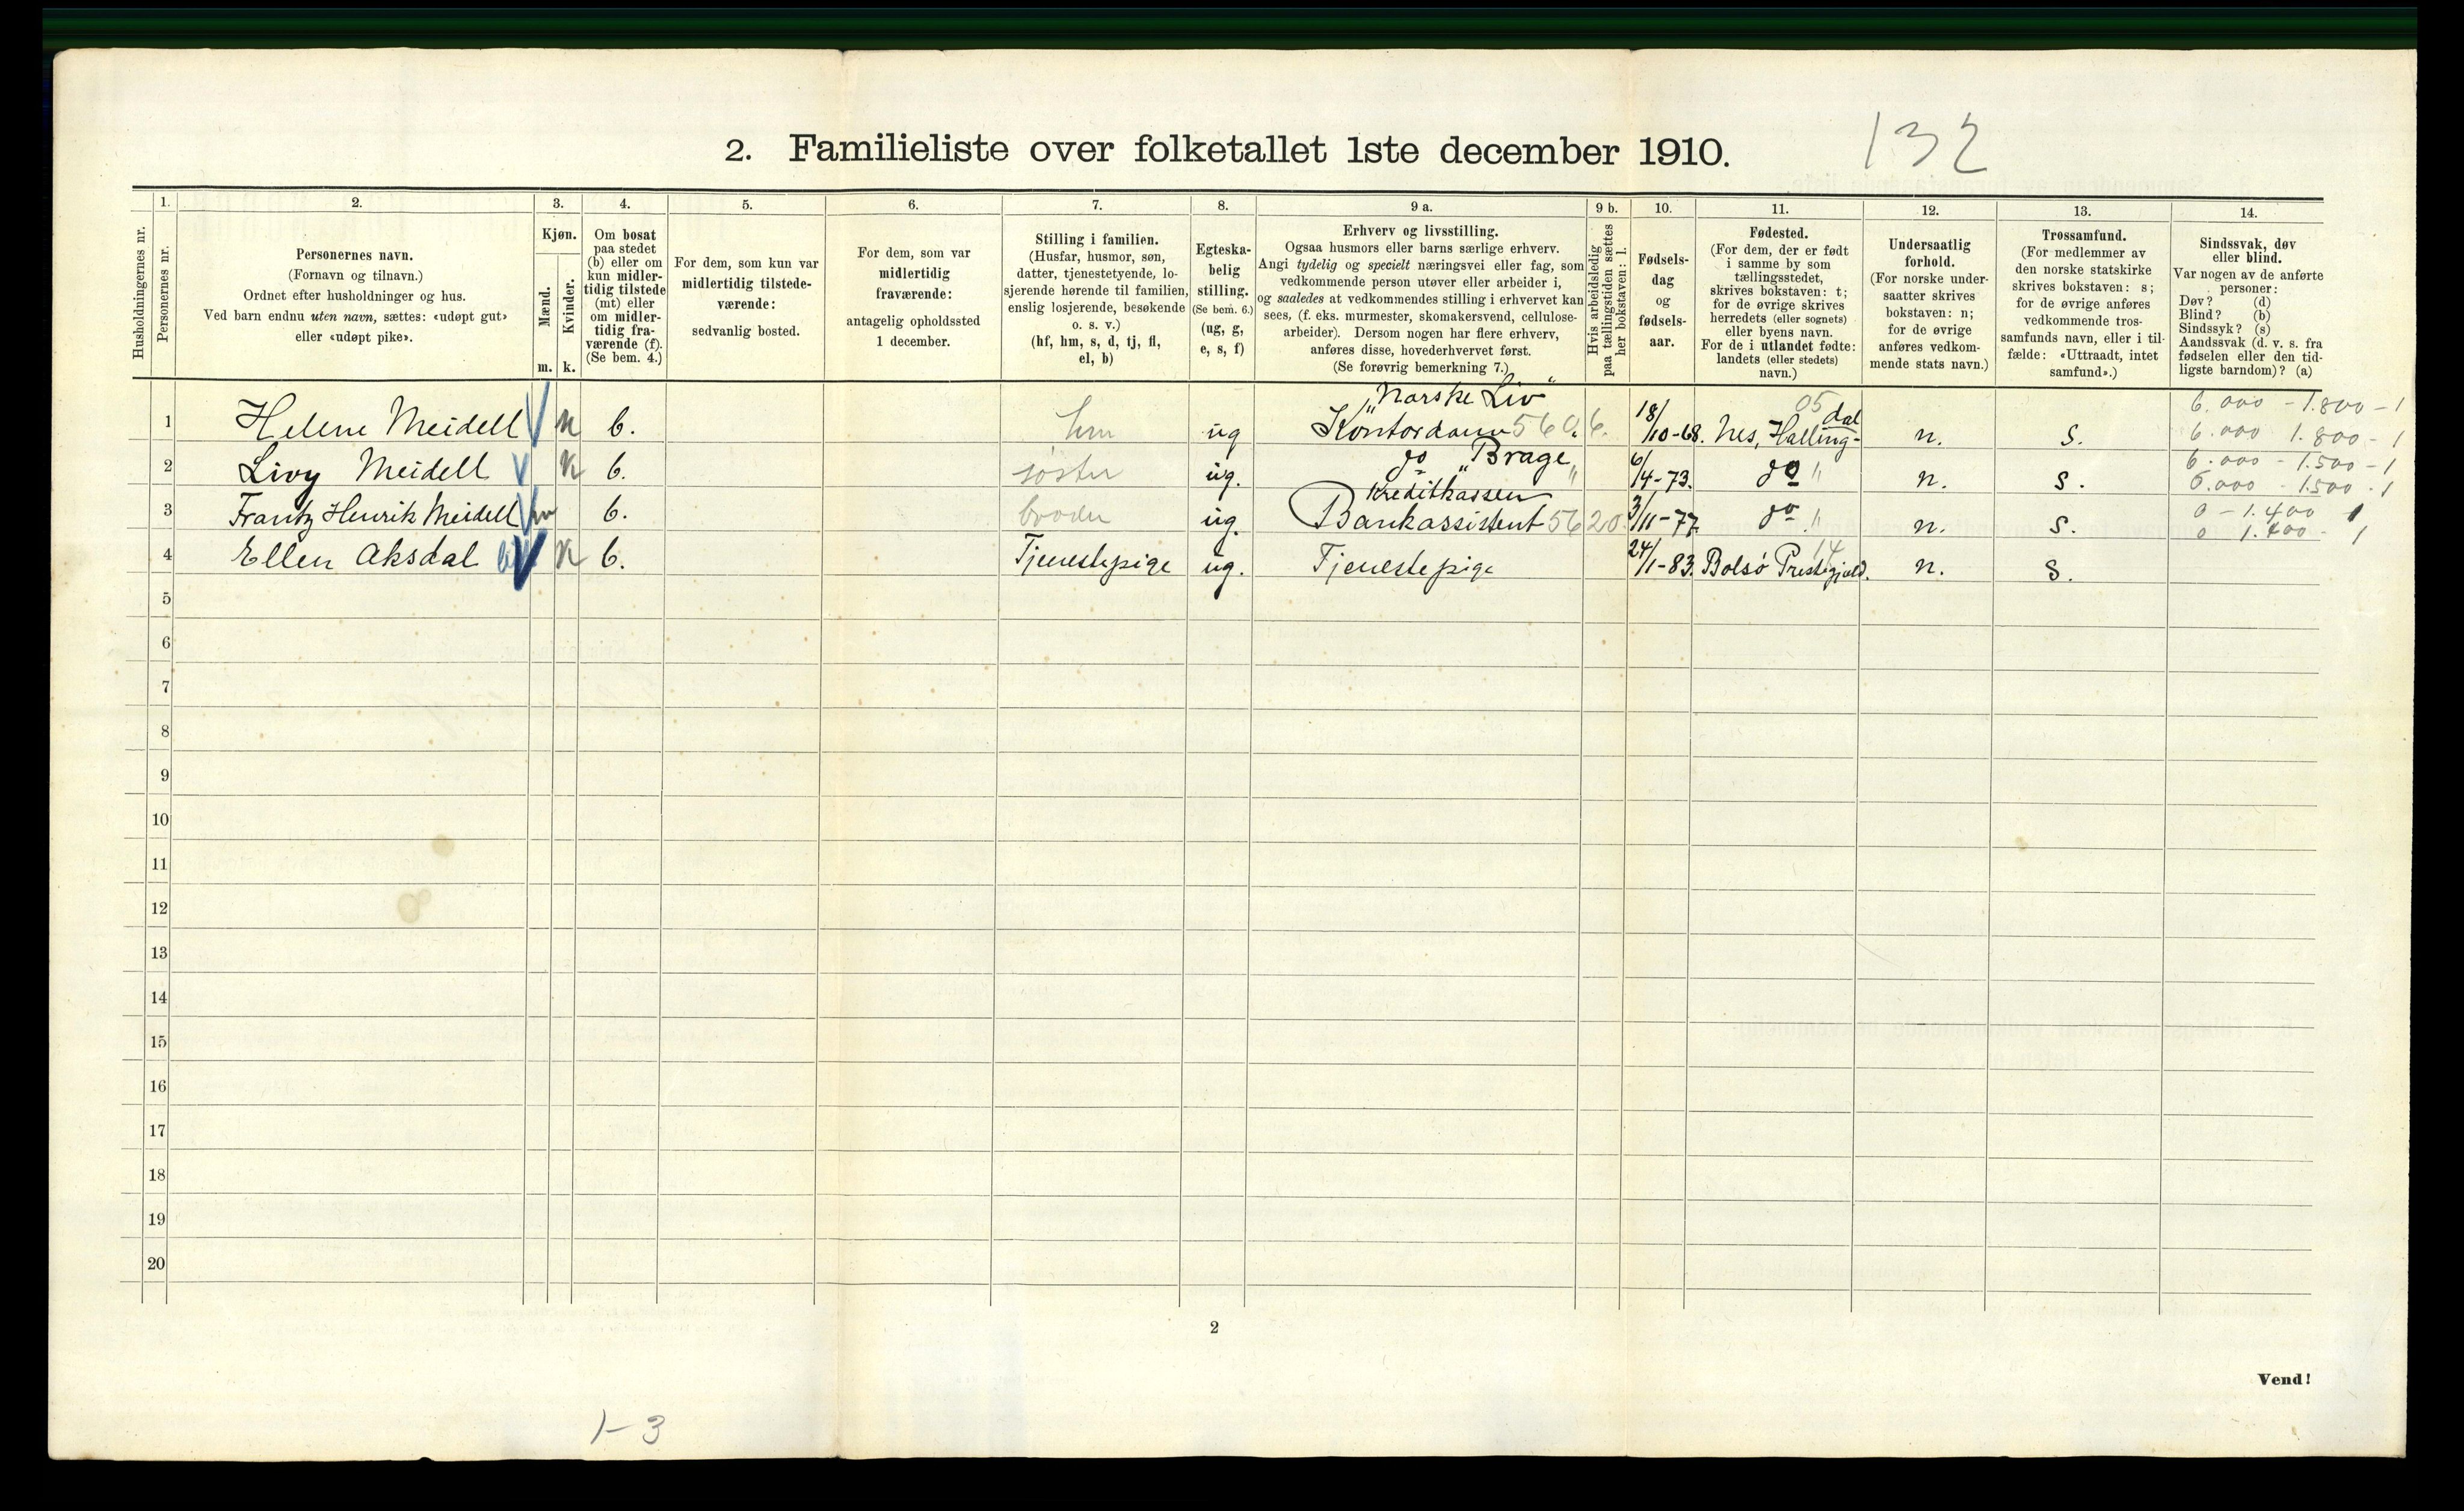 2. Familieliste over folketallet 1ste december 1910.
132
Husholdningernes nr.
1.
Personernes nr.
2.
Personernes navn.
(Fornavn og tilnavn.)
Ordnet efter husholdninger og hus.
Ved barn endnu uten navn, sættes: «udøpt gut»
eller «udøpt pike».
3.
Kjøn.
Mænd.
Kvinder.
m. k.
4.
Om bosat
paa stedet
(b) eller om
kun midler-
tidig tilstede
(mt) eller
om midler-
tidig fra-
værende (f).
(Se bem. 4.)
5.
For dem, som kun var
midlertidig tilstede-
værende:
sedvanlig bosted.
6.
For dem, som var
midlertidig
fraværende:
antagelig opholdssted
1 december.
7.
Stilling i familien.
(Husfar, husmor, søn,
datter, tjenestetyende, lo-
sjerende hørende til familien,
enslig losjerende, besøkende
o. s. v.)
(hf, hm, s, d, tj, fl,
el, b)
8.
Egteska-
belig
stilling.
(Se bem. 6.)
(ug, g,
e, s, f)
9 a.
Erhverv og livsstilling.
Ogsaa husmors eller barns særlige erhverv.
Angi tydelig og specielt næringsvei eller fag, som
vedkommende person utøver eller arbeider i,
og saaledes at vedkommendes stilling i erhvervet kan
sees, (f. eks. murmester, skomakersvend, cellulose-
arbeider). Dersom nogen har flere erhverv,
anføres disse, hovederhvervet først.
(Se forøvrig bemerkning 7.)
9 b.
Hvis arbeidsledig
paa tællingstiden sættes
her bokstaven: l.
10.
Fødsels-
dag
og
fødsels-
aar.
11.
Fødested.
(For dem, der er født
i samme by som
tællingsstedet,
skrives bokstaven: t;
for de øvrige skrives
herredets (eller sognets)
eller byens navn.
For de i utlandet fødte:
landets (eller stedets)
navn.)
12.
Undersaatlig
forhold.
(For norske under-
saatter skrives
bokstaven: n;
for de øvrige
anføres vedkom-
mende stats navn.)
13.
Trossamfund.
(For medlemmer av
den norske statskirke
skrives bokstaven: s;
for de øvrige anføres
vedkommende tros-
samfunds navn, eller i til-
fælde: «Uttraadt, intet
samfund».)
14.
Sindssvak, døv
eller blind.
Var nogen av de anførte
personer:
Døv? (d)
Blind? (b)
Sindssyk? (s)
Aandssvak (d. v. s. fra
fødselen eller den tid-
ligste barndom)? (a)
"Norske Liv" 05 dal 6.000 - 1.800 - 1
1 Helene Meidell k b. hm ug Kontordame 560.6. 18/10-68. Nes, Halling- n. s. 6.000 1.800 - 1
6.000 - 1.500 - 1
2 Livy Meidell k b. søster ug. do "Brage" 6/4-73. do " n. s. 6.000 - 1.500 - 1
Kreditkassen 0 - 1.400 1
3 Frantz Henrik Meidell m b. broder ug. Bankassistent 5620. 3/11-77. do " n. s. 0 1.400 - 1
14
4 Ellen Aksdal k b. Tjenestepige ug. Tjenestepige 24/1-83. Bolsø Prestegjæld. n. s.
5
6
7
8
9
10
11
12
13
14
15
16
17
18
19
20
2
Vend!
1-3